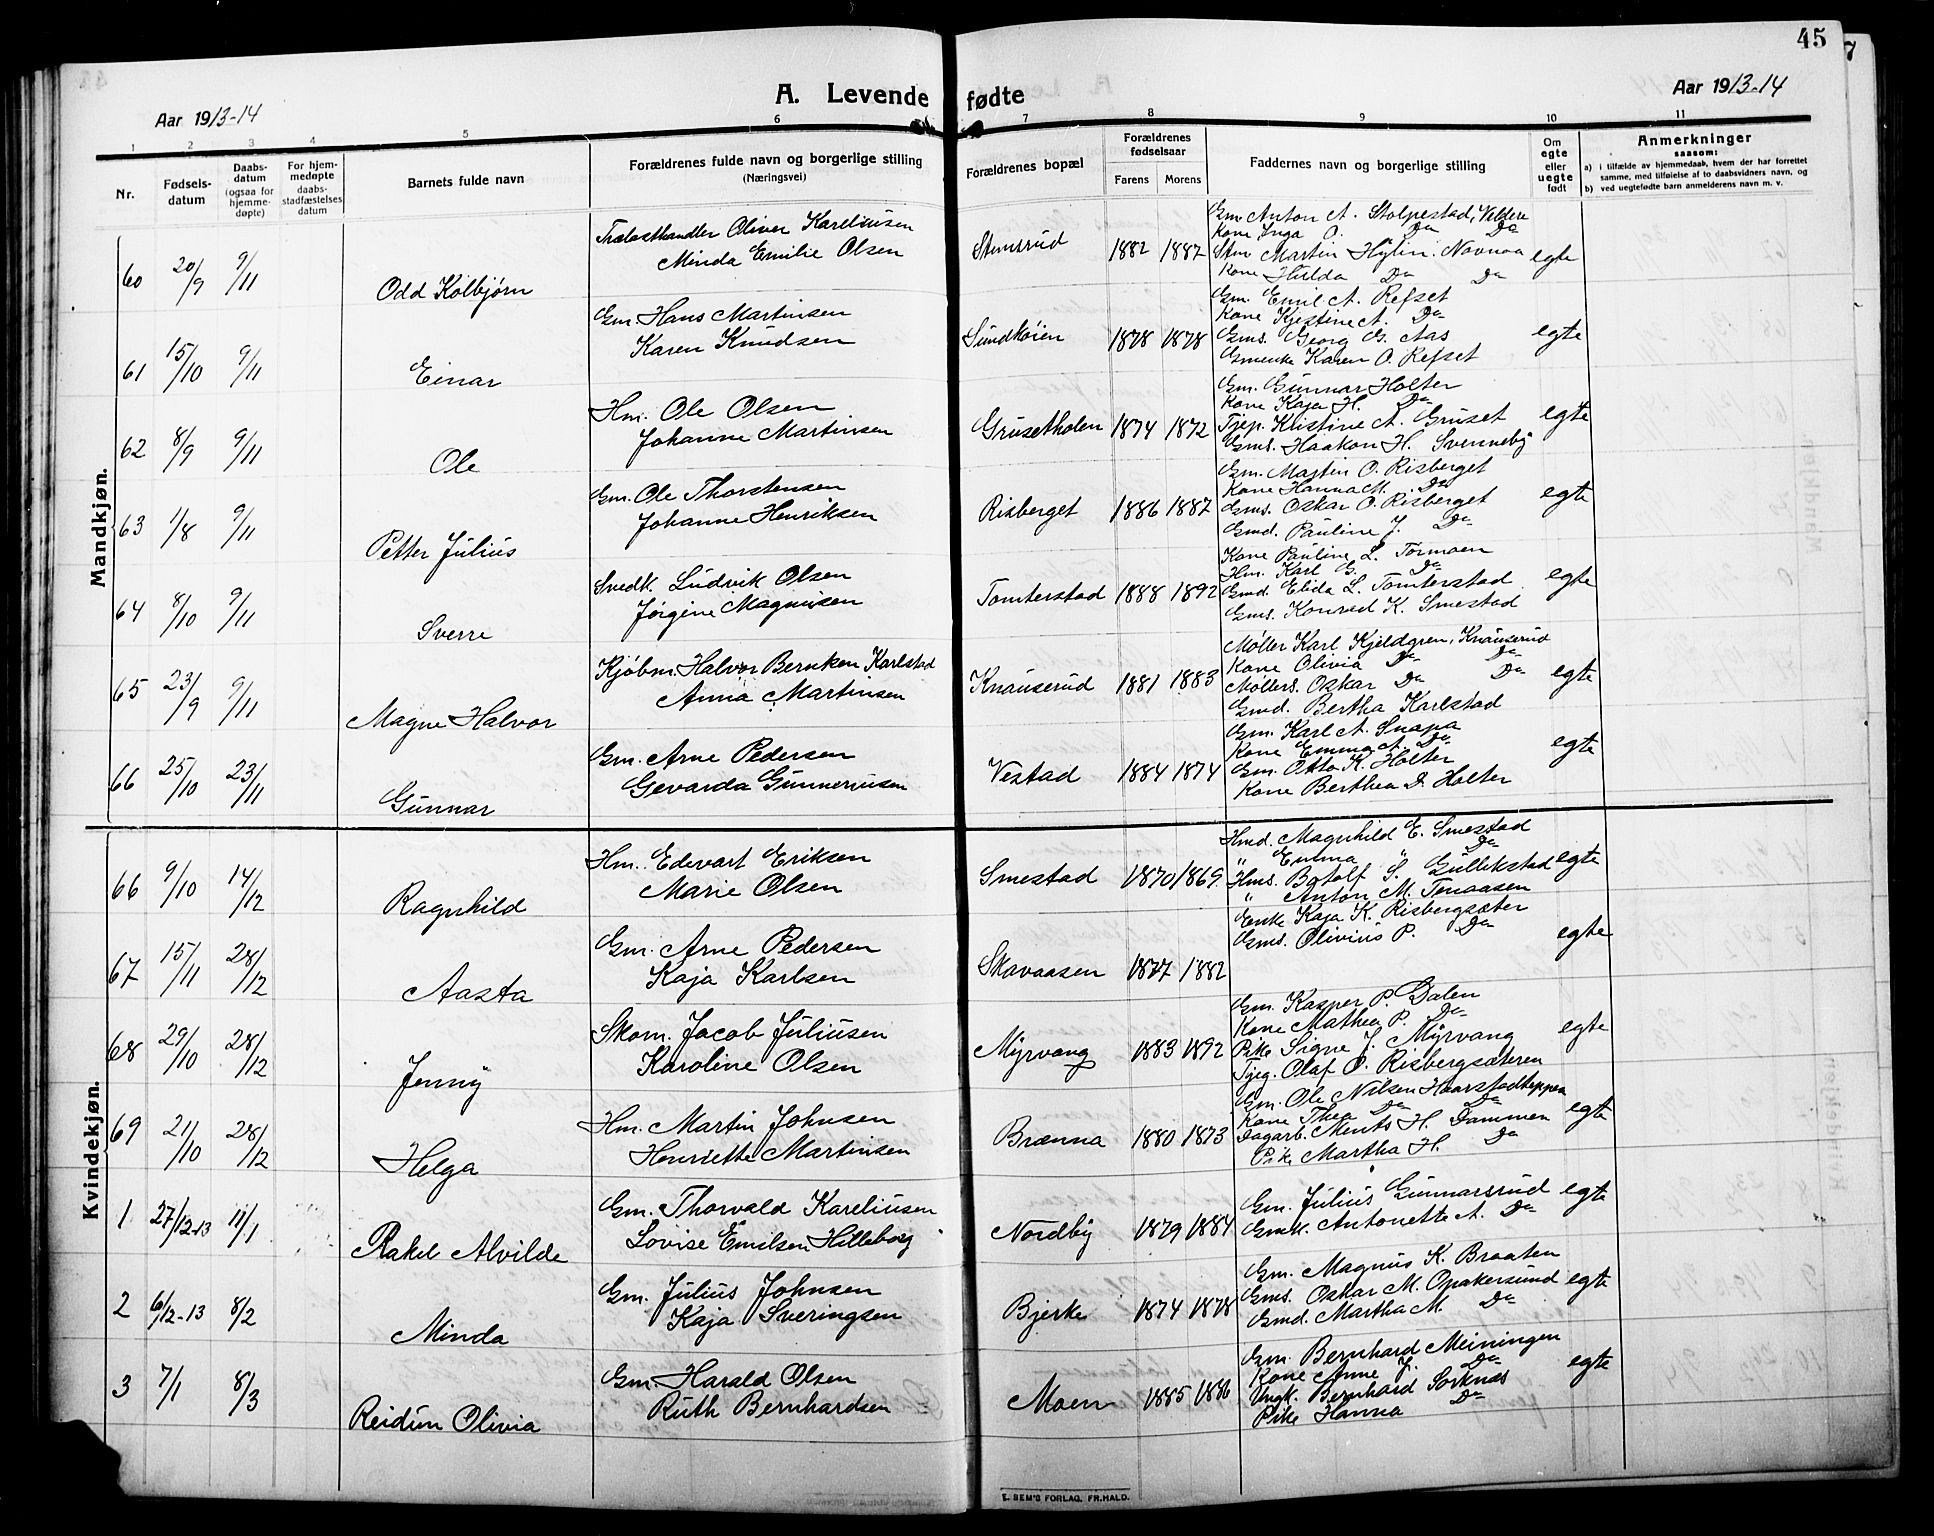 45
7
A. Levende fødte
Aar 1913-14
Aar 1913-14
1 2 3 4 5 6 7 8 9 10 11
Nr.
Fødsels-
datum
Daabs-
datum
(ogsaa for
hjemme-
døpte)
For hjem-
medøpte
daabs-
stadfæstelses
datum
Barnets fulde navn
Forældrenes fulde navn og borgerlige stilling
(Næringsvei)
Forældrenes bopæl
Forældrenes
fødselsaar
Farens Morens
Faddernes navn og borgerlige stilling
Om
egte
eller
uegte
født
Anmerkninger
saasom:
a) i tilfælde av hjemmedaab, hvem der har forrettet
samme, med tilføielse af to daabsvidners navn, og
b) ved uegtefødte barn anmelderens navn m. v.
Mandkjøn.
60 20/9 9/11 Odd Kolbjørn
Trælasthandler Oliver Kareliusen
Minda Emilie Olsen
Stensrud 1882 1887
Gm. Anton A. Stolpestad, Veldre
Kone Inga O. Do Do
Martin Hylin. Navnaa
Kone Hulda Do Do
egte
61 15/10 9/11 Einar
Gm. Hans Martinsen
Karen Knudsen
Sundkøien 1878 1878
Gm. Emil A. Refset
Kone Kjestine A. Do
Gms. Georg G. Aas
Gmenke Karen O. Refset
egte
62 8/9 9/11 Ole
Hm. Ole Olsen
Johanne Martinsen
Grusetholen 1874 1872
Gm. Gunnar Holter
Kone Kaja H. Do
Tjep. Kristine A. Gruset
Gms. Haakon H. Svenneby
egte
63 1/8 9/11 Petter Julius
Gm. Ole Thorstensen
Johanne Henriksen
Risberget 1886 1887
Gm. Martin O. Risberget
Kone Hanna M. Do
Gms. Oskar O. Risberget
Gmd. Pauline J. Do
egte
64 8/10 9/11 Sverre
Snedk. Ludvik Olsen
Jørgine Magnusen
Tomterstad 1888 1892
Kone Pauline L. Tormoen
Hm. Karl G. Do
Gmd. Elida L. Tomterstad
Gms. Konrad K. Smestad
egte
65 23/9 9/11 Magne Halvor
Kjøbm. Halvor Berntsen Karlstad
Anna Martinsen
Knauserud 1881 1883
Møller Karl Kjeldgren, Knauserud
Kone Olivia Do Do
Møllers. Oskar Do Do
Gmd. Bertha Karlstad
egte
66 25/10 23/11 Gunnar
Gm. Arne Pedersen
Gevarda Gunneriusen
Vestad 1884 1874
Gm. Karl A. Snapa
Kone Emma A. Do
Gm. Otto K. Holter
Kone Berthea D. Holter
egte
Kvindekjøn.
66 9/10 14/12 Ragnhild
Hm. Edevart Eriksen
Marie Olsen
Smestad 1870 1869
Hmd. Magnhild E. Smestad
" Emma " Do
Hms. Botolf S. Gullikstad
" Anton M. Tenaasen
egte
67 15/11 28/12 Aasta
Gm. Arne Pedersen
Kaja Karlsen
Skavaasen 1877 1882
Enke Kaja K. Risbergsæter
Gms. Olivius P. Do
egte
68 29/10 28/12 Jenny
Skom. Jacob Juliusen
Karoline Olsen
Myrvang 1883 1892
Gm. Kasper P. Dalen
Kone Mathea P. Do
Pike Signe J. Myrvang
Tjeg. Olaf O. Risbergsæteren
egte
69 21/10 28/12 Helga
Hm. Martin Johnsen
Henriette Martinsen
Brænna 1880 1873
Gm. Ole Nilsen Haarstadteppen
Kone Thea Do Do
Dagarb. Ments H. Dammen
Pike Martha H. Do
egte
1 27/12-13 11/1 Rakel Alvilde
Gm. Thorvald Kareliusen
Lovise Emilsen Hilleborg
Nordby 1879 1884
Gm. Julius Gunnarsrud
Gmk. Antonette A. Do
egte
2 6/12-13 8/2 Minda
Gm. Julius Johnsen
Kaja Sveringsen
Bjerke 1874 1878
Gm. Magnus K. Braaten
Gms. Oskar M. Opakersund
Gmd. Martha M. Do
egte
3 7/1 8/3 Reidun Olivia
Gm. Harald Olsen
Ruth Bernhardsen
Moen 1885 1886
Gm. Bernhard Meiningen
Kone Anne J. Do
Ungk. Bernhard Sorknæs
Pike Hanna Do
egte
E. SEM'S FORLAG, FR.HALD.